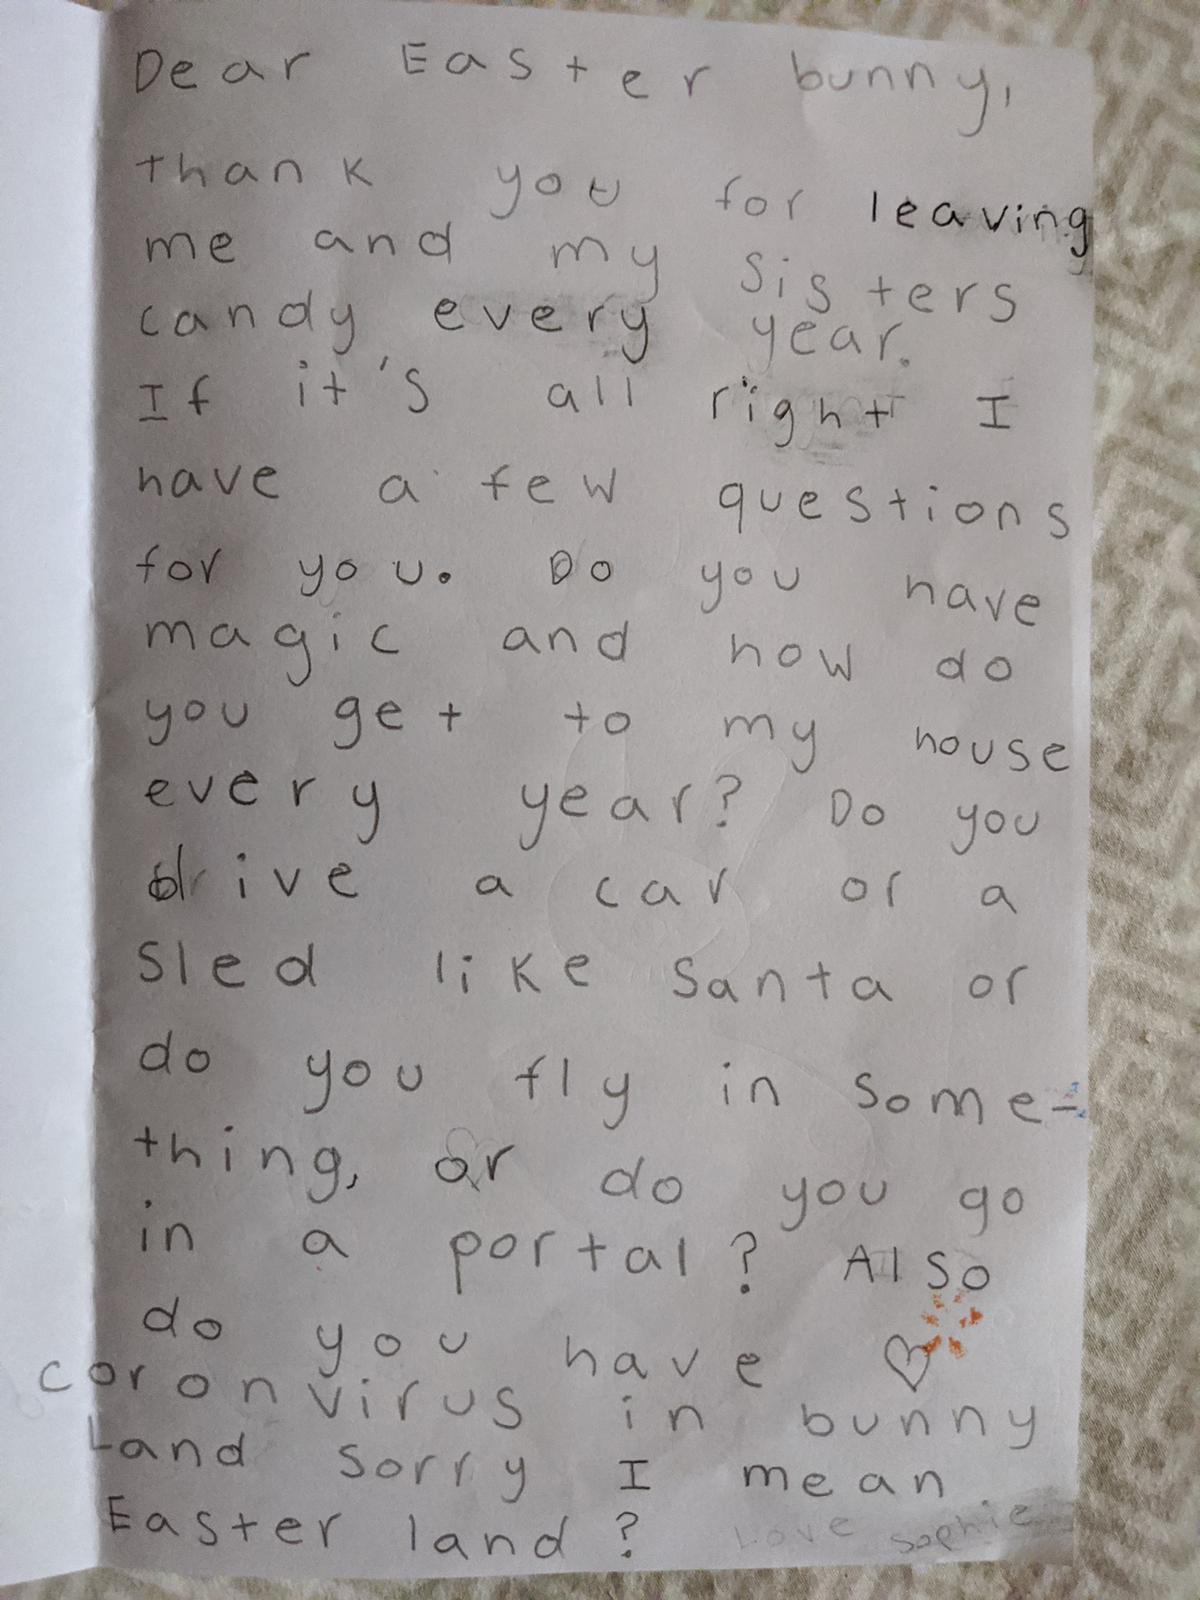 Dear Easter bunny,
thank you for leaving
me and my sisters
candy every year.
If it's all right I
have a few questions
for you. Do you have
magic and how do
you get to my house
every year? Do you
drive a car or a
sled like Santa or
do you fly in some-
thing, or do you go
in a portal? Also
do you have
coronvirus in bunny
Land sorry I mean
Easter land? Love Sophie